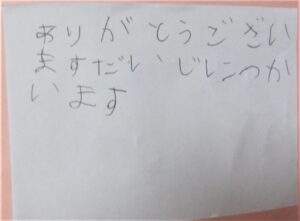 ありがとうござい
ますだいじにつか
います